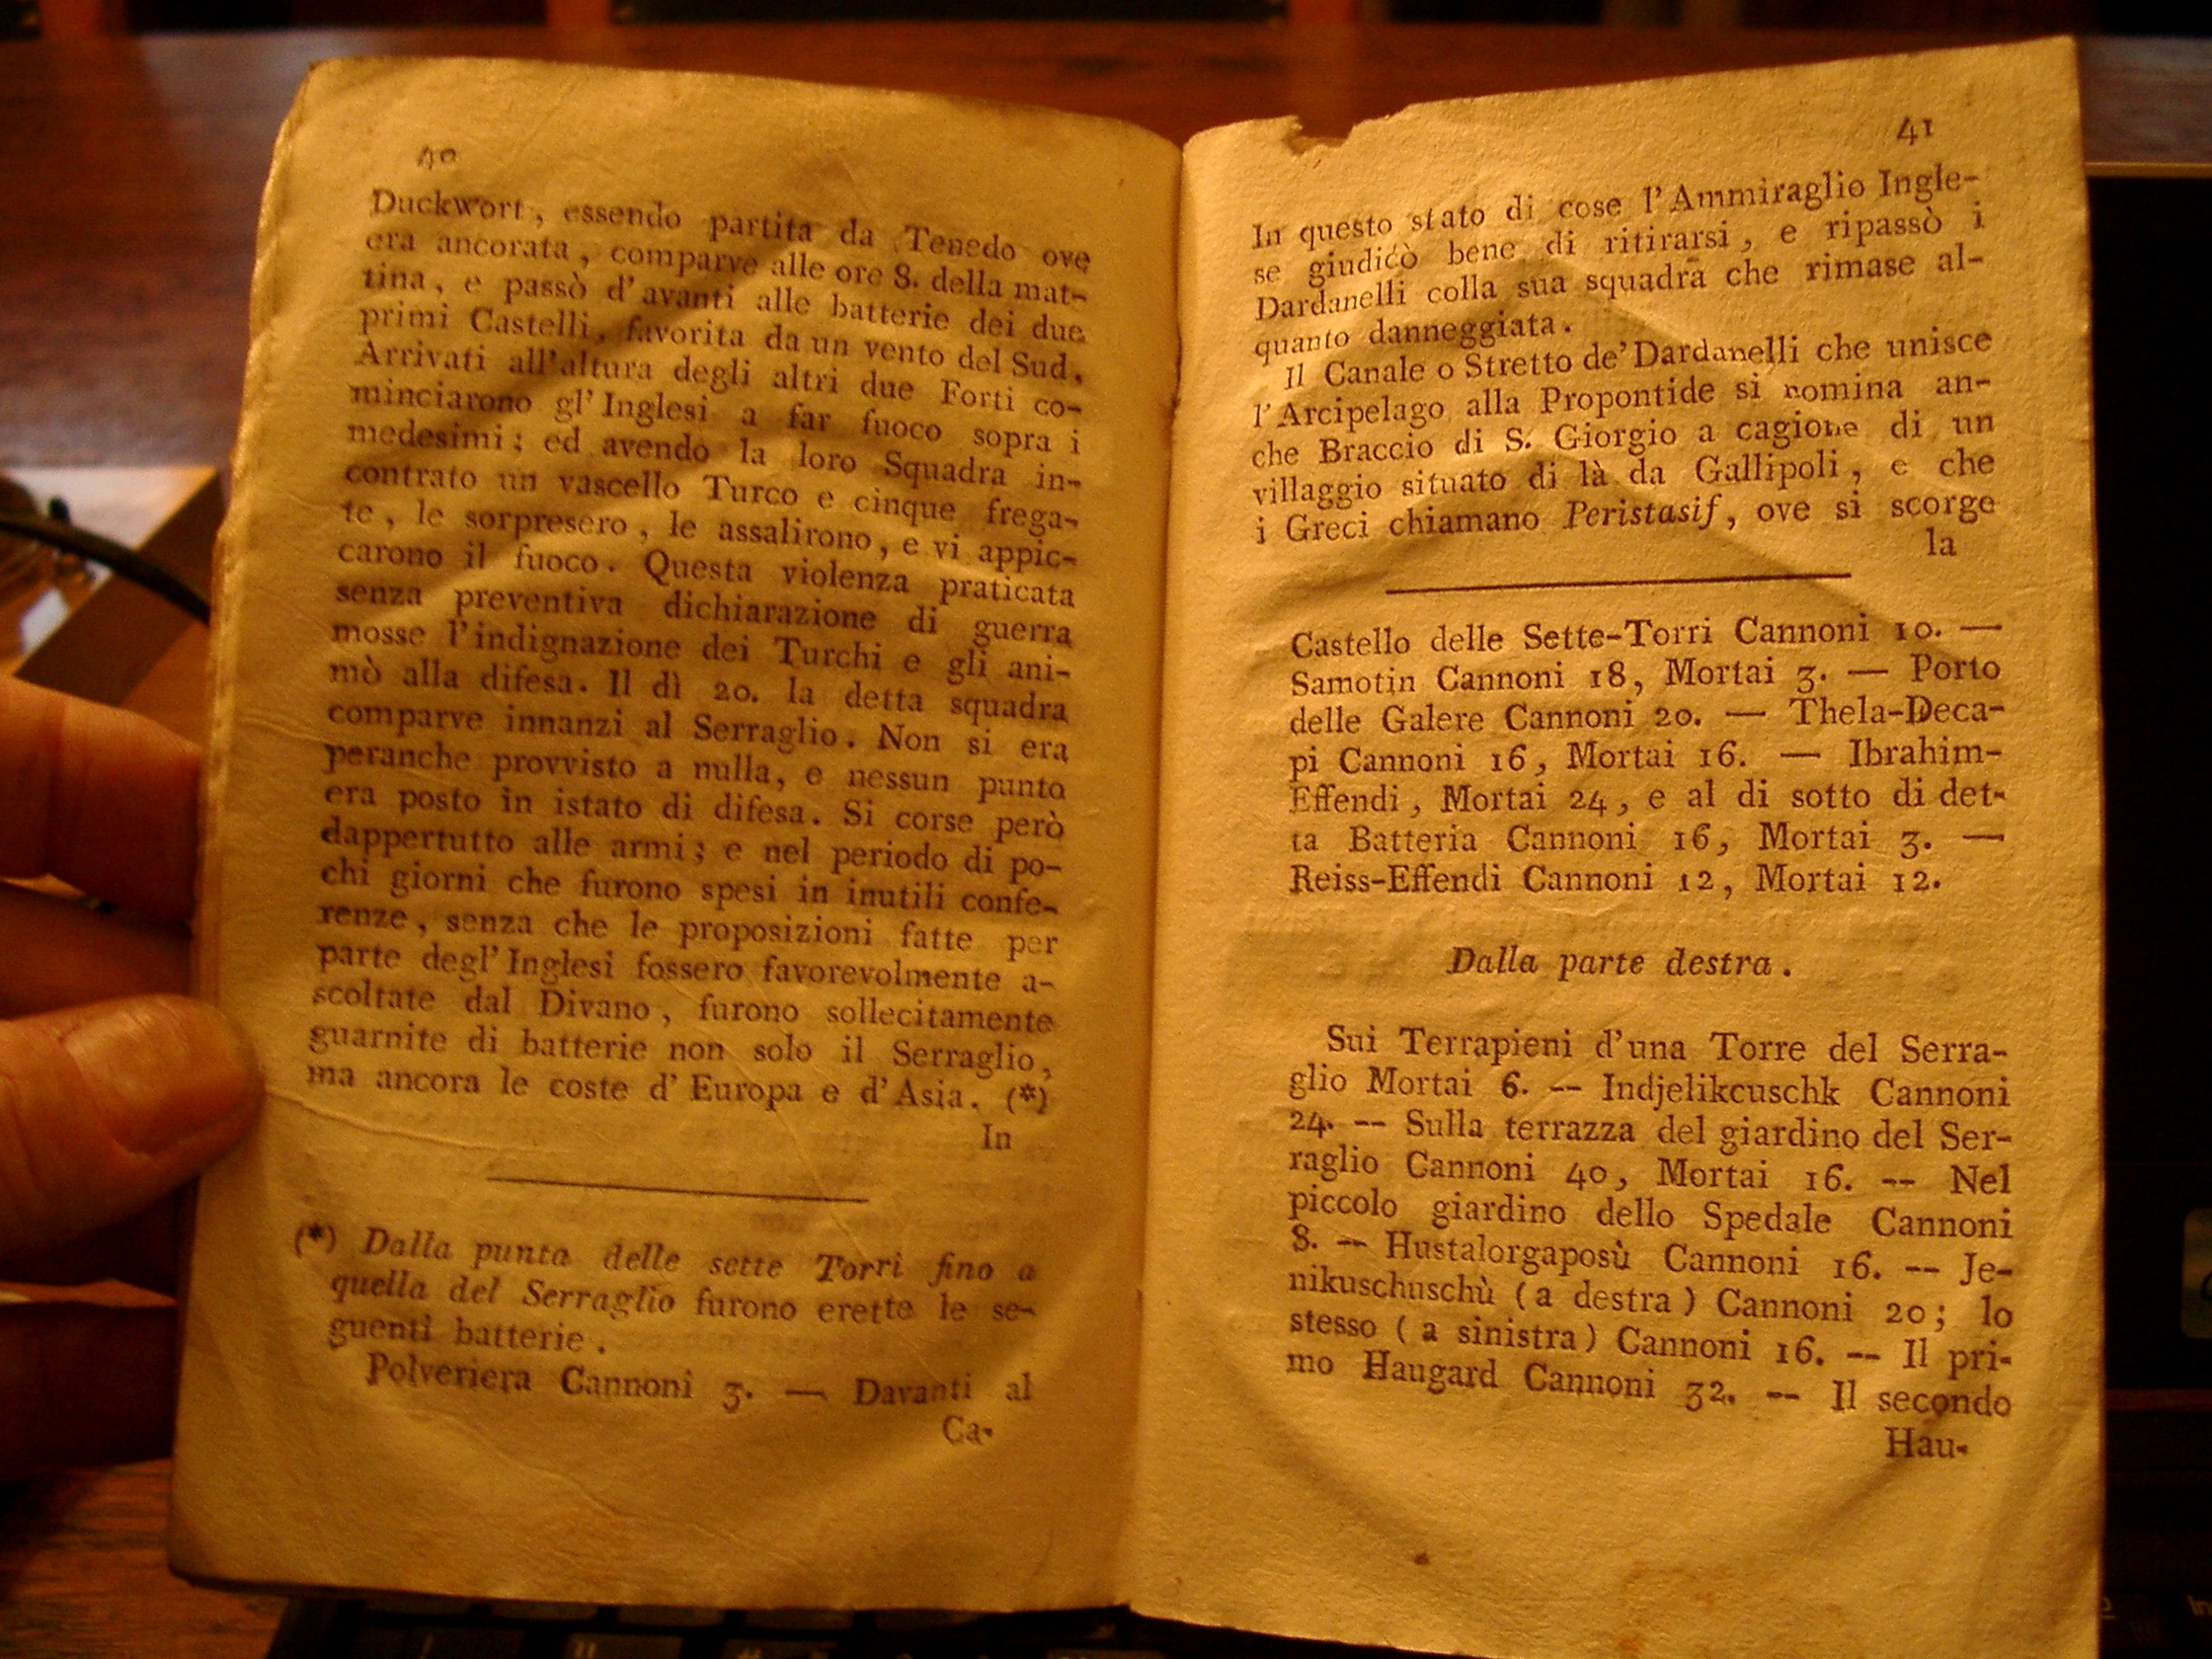 40
Duckwort, essendo partita da Tenedo ove
era ancorata, comparve alle ore 8. della mat-
tina, e passò d'avanti alle batterie dei due
primi Castelli, favorita da un vento del Sud.
Arrivati all'altura degli altri due Forti co-
minciarono gl'Inglesi a far fuoco sopra i
medesimi; ed avendo la loro Squadra in-
contrato un vascello Turco e cinque frega-
te, le sorpresero, le assalirono, e vi appic-
carono il fuoco. Questa violenza praticata
senza preventiva dichiarazione di guerra
mosse l'indignazione dei Turchi e gli ani-
mò alla difesa. Il dì 20. la detta squadra
comparve innanzi al Serraglio. Non si era
peranche provvisto a nulla, e nessun punto
era posto in istato di difesa. Si corse però
dappertutto alle armi; e nel periodo di po-
chi giorni che furono spesi in inutili confe-
renze, senza che le proposizioni fatte per
parte degl'Inglesi fossero favorevolmente a-
scoltate dal Divano, furono sollecitamente
guarnite di batterie non solo il Serraglio,
ma ancora le coste d'Europa e d'Asia. (*)
In
(*) Dalla punta delle sette Torri fino a
quella del Serraglio furono erette le se-
guenti batterie.
Polveriera Cannoni 3. — Davanti al
Ca-
41
In questo stato di cose l'Ammiraglio Ingle-
se giudicò bene di ritirarsi, e ripassò i
Dardanelli colla sua squadra che rimase al-
quanto danneggiata.
Il Canale o Stretto de'Dardanelli che unisce
l'Arcipelago alla Propontide si nomina an-
che Braccio di S. Giorgio a cagione di un
villaggio situato di là da Gallipoli, e che
i Greci chiamano Peristasif, ove si scorge
la
Castello delle Sette-Torri Cannoni 10. —
Samotin Cannoni 18, Mortai 3. — Porto
delle Galere Cannoni 20. — Thela-Deca-
pi Cannoni 16, Mortai 16. — Ibrahim-
Effendi, Mortai 24, e al di sotto di det-
ta Batteria Cannoni 16, Mortai 3. —
Reiss-Effendi Cannoni 12, Mortai 12.
Dalla parte destra.
Sui Terrapieni d'una Torre del Serra-
glio Mortai 6. -- Indjelikcuschk Cannoni
24. -- Sulla terrazza del giardino del Ser-
raglio Cannoni 40, Mortai 16. -- Nel
piccolo giardino dello Spedale Cannoni
8. -- Hustalorgaposù Cannoni 16. -- Je-
nikuschuschù (a destra) Cannoni 20; lo
stesso (a sinistra) Cannoni 16. -- Il pri-
mo Haugard Cannoni 32. -- Il secondo
Hau-